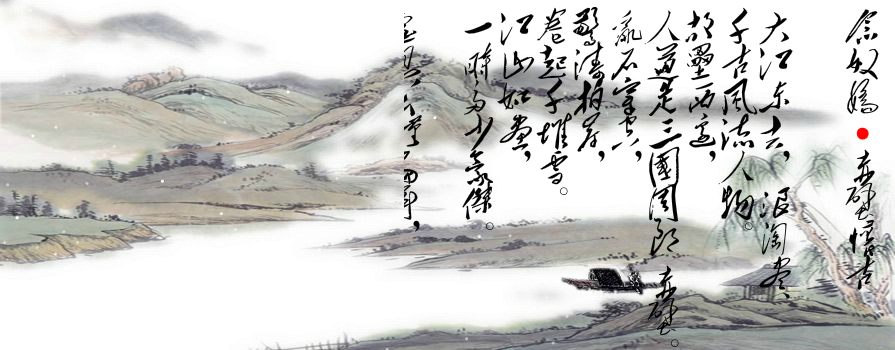 念奴嬌●赤壁懷古
大江东去，浪淘盡，
千古風流人物。
故壘西邊，
人道是三國周郎赤壁。
亂石穿空，
驚濤拍岸，
卷起千堆雪。
江山如畫，
一時多少豪傑。